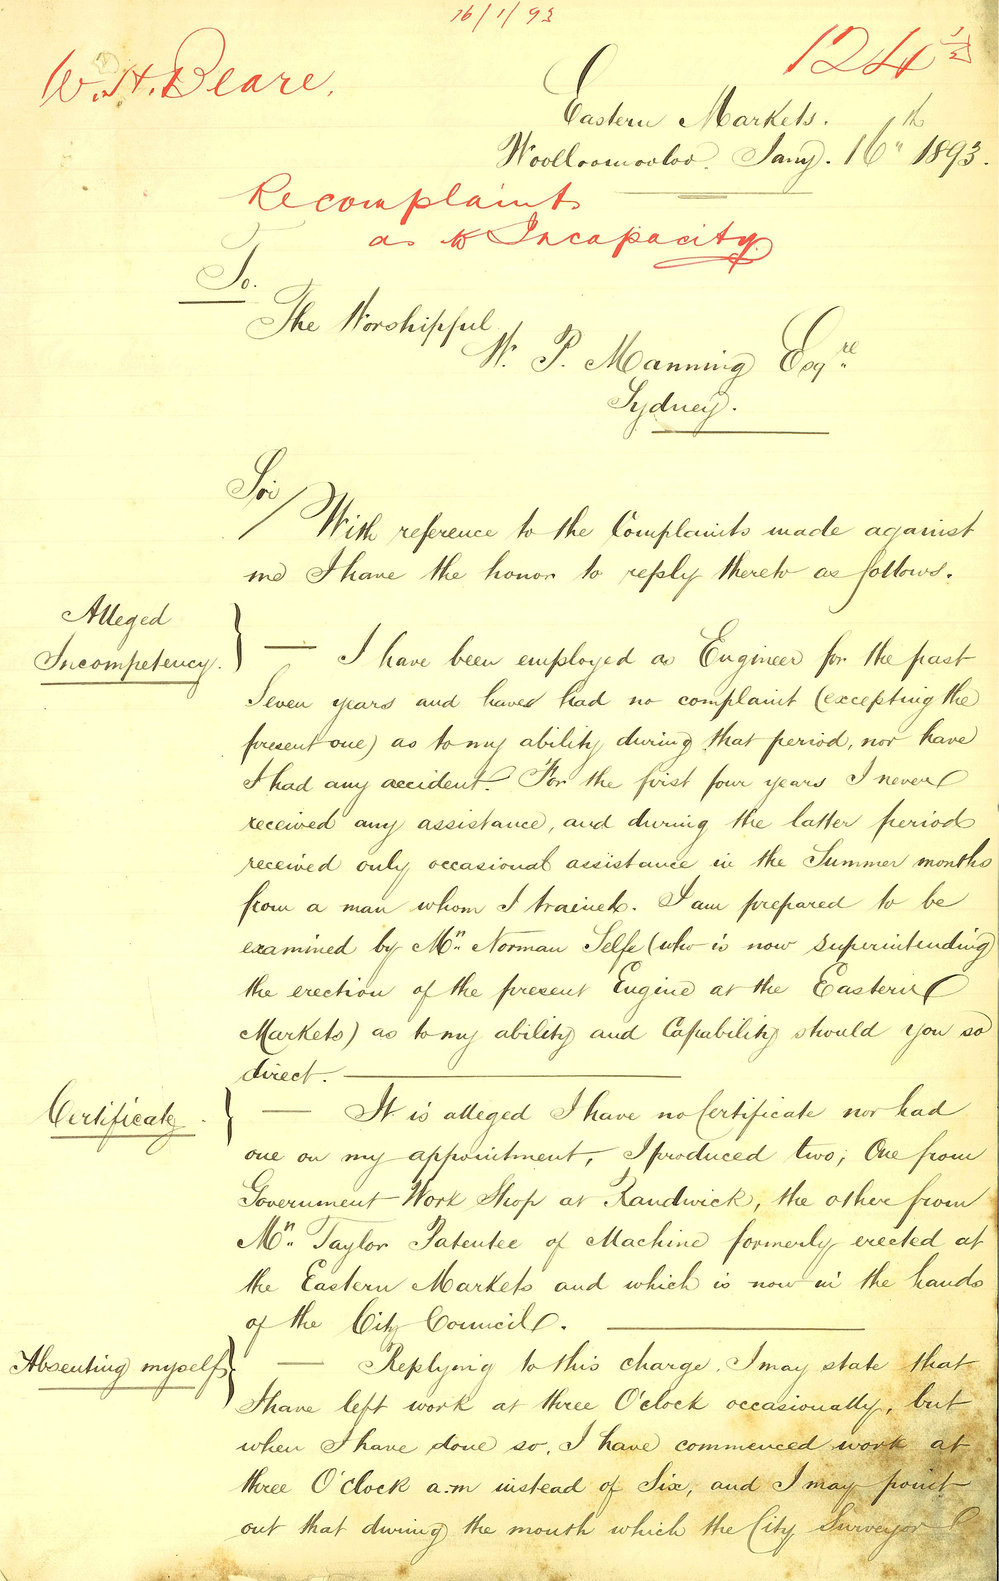 16/1/93
W. H. Beare.
124 1/2
Eastern Markets.
Woolloomooloo. Jany. 16th 1893.
Re complaint
as to Incapacity
To.
The Worshipful
W. P. Manning Esqre
Sydney.
Sir
With reference to the Complaints made against
me I have the honor to reply thereto as follows.
Alleged
Incompetency.
— I have been employed as Engineer for the past
Seven years and have had no complaint (excepting the
present one) as to my ability during that period, nor have
I had any accident. For the first four years I never
received any assistance, and during the latter period
received only occasional assistance in the Summer months
from a man whom I trained. I am prepared to be
examined by Mr. Norman Selfe (who is now superintending
the erection of the present Engine at the Eastern
Markets) as to my ability and Capability should you so
direct. —
Certificate.
— It is alleged I have no Certificate nor had
one on my appointment, I produced two; One from
Government Work Shop at Randwick, the other from
Mr. Taylor Patentee of Machine formerly erected at
the Eastern Markets and which is now in the hands
of the City Council. —
Absenting myself
— Replying to this charge, I may state that
I have left work at three O'clock occasionally, but
when I have done so, I have commenced work at
three O'clock a.m instead of Six, and I may point
out that during the month which the City Surveyor